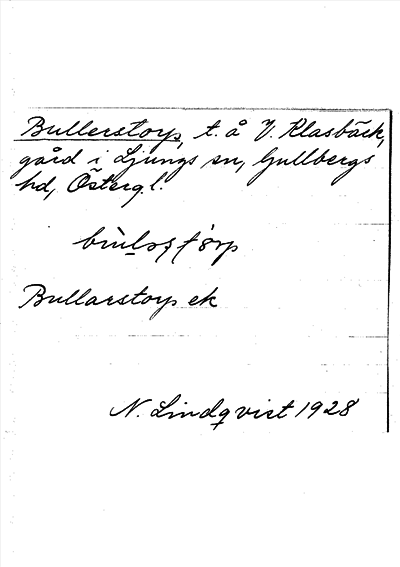 Bullerstorp, t. å V. Klasbäck,
gård i Ljungs sn, Gullbergs
hd, Östergl.
Bullarstorp ek
N. Lindqvist 1928